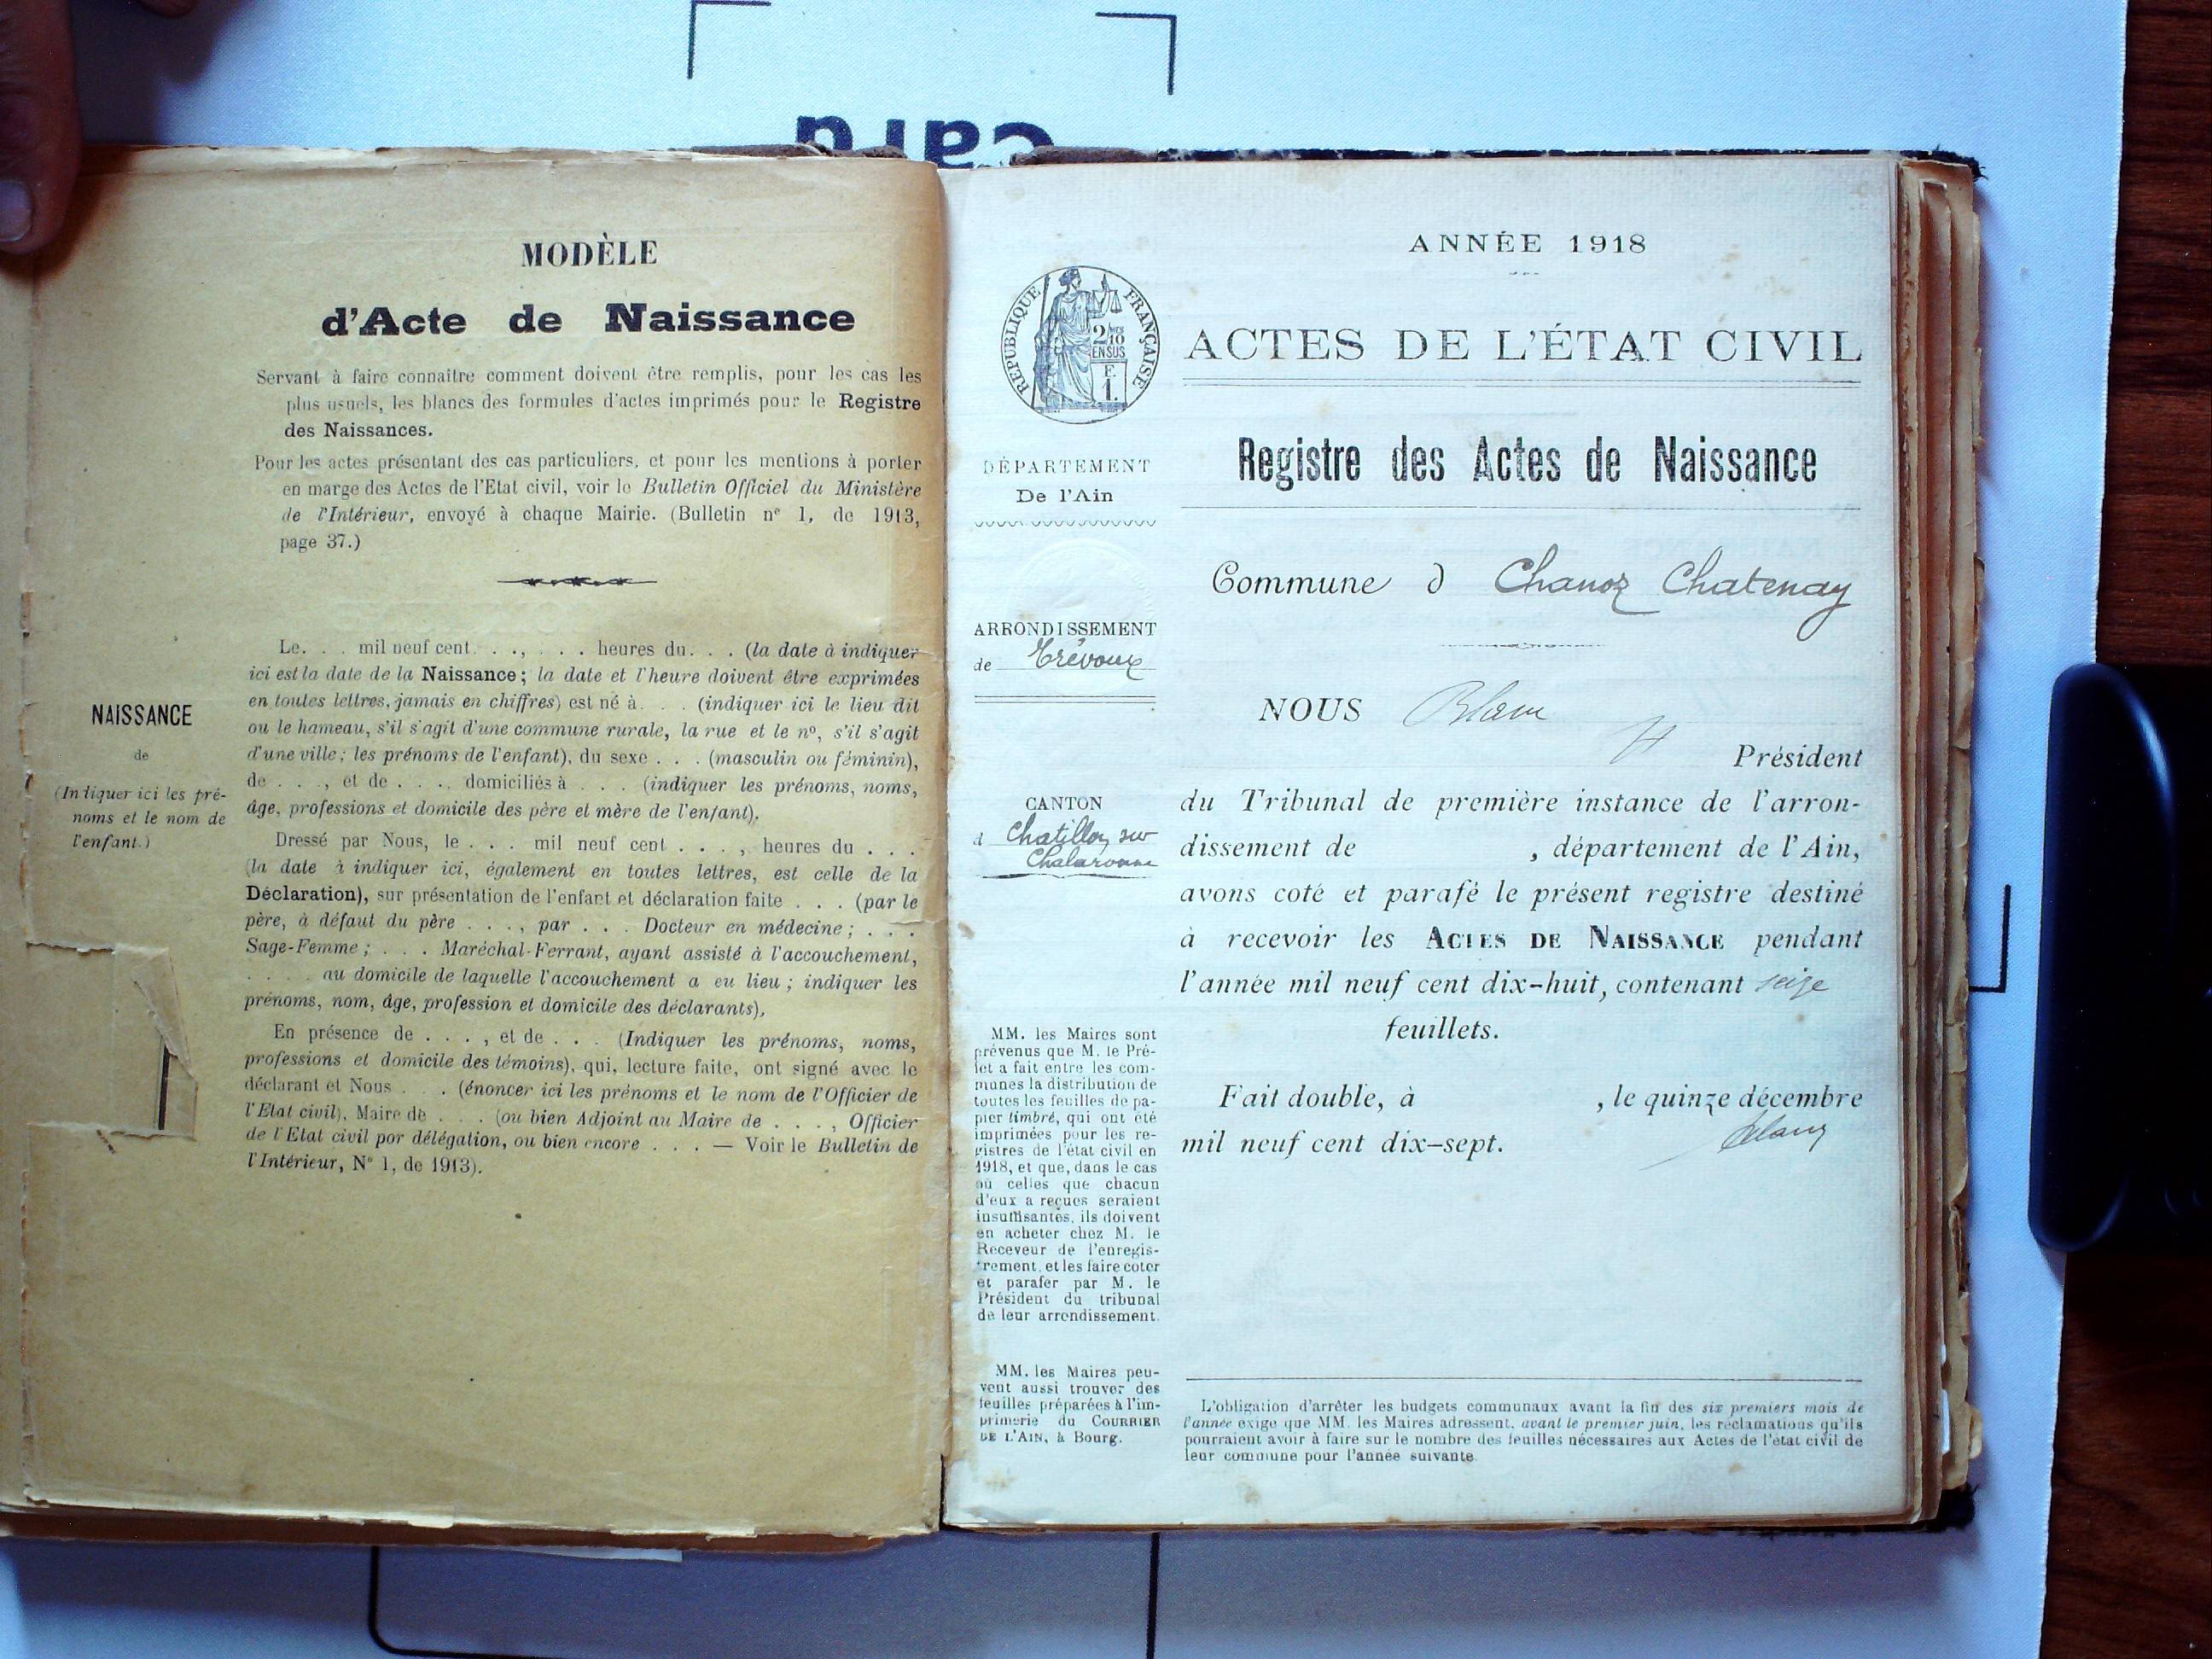 card
MODÈLE
d'Acte de Naissance
Servant à faire connaître comment doivent être remplis, pour les cas les
plus usuels, les blancs des formules d'actes imprimés pour le Registre
des Naissances.
Pour les actes présentant des cas particuliers, et pour les mentions à porter
en marge des Actes de l'Etat civil, voir le Bulletin Officiel du Ministère
de l'Intérieur, envoyé à chaque Mairie. (Bulletin n° 1, de 1913,
page 37.)
NAISSANCE
de
(Indiquer ici les pré-
noms et le nom de
l'enfant.)
Le. . . mil neuf cent. . ., . . . heures du. . . (la date à indiquer
ici est la date de la Naissance; la date et l'heure doivent être exprimées
en toutes lettres, jamais en chiffres) est né à. . . (indiquer ici le lieu dit
ou le hameau, s'il s'agit d'une commune rurale, la rue et le n°, s'il s'agit
d'une ville; les prénoms de l'enfant), du sexe . . . (masculin ou féminin),
de . . ., et de . . ., domiciliés à . . . (indiquer les prénoms, noms,
âge, professions et domicile des père et mère de l'enfant).
Dressé par Nous, le . . . mil neuf cent . . . , heures du . . .
(la date à indiquer ici, également en toutes lettres, est celle de la
Déclaration), sur présentation de l'enfant et déclaration faite . . . (par le
père, à défaut du père . . ., par . . . Docteur en médecine; . . .
Sage-Femme; . . . Maréchal-Ferrant, ayant assisté à l'accouchement,
. . . . au domicile de laquelle l'accouchement a eu lieu; indiquer les
prénoms, nom, âge, profession et domicile des déclarants),
En présence de . . . , et de . . . (Indiquer les prénoms, noms,
professions et domicile des témoins), qui, lecture faite, ont signé avec le
déclarant et Nous . . . (énoncer ici les prénoms et le nom de l'Officier de
l'Etat civil), Maire de . . . (ou bien Adjoint au Maire de . . . , Officier
de l'Etat civil par délégation, ou bien encore . . . — Voir le Bulletin de
l'Intérieur, N° 1, de 1913).
ANNÉE 1918
RÉPUBLIQUE FRANÇAISE
2/10 EN SUS
F. 1.
ACTES DE L'ÉTAT CIVIL
DÉPARTEMENT
De l'Ain
Registre des Actes de Naissance
Commune d Chanoz Chatenay
ARRONDISSEMENT
de Trévoux
CANTON
d Chatillon sur
Chalaronne
NOUS Blanc
Président
du Tribunal de première instance de l'arron-
dissement de , département de l'Ain,
avons coté et parafé le présent registre destiné
à recevoir les ACTES DE NAISSANCE pendant
l'année mil neuf cent dix-huit, contenant seize
feuillets.
Fait double, à , le quinze décembre
mil neuf cent dix-sept.
Blanc
MM. les Maires sont
prévenus que M. le Pré-
fet a fait entre les com-
munes la distribution de
toutes les feuilles de pa-
pier timbré, qui ont été
imprimées pour les re-
gistres de l'état civil en
1918, et que, dans le cas
où celles que chacun
d'eux a reçues seraient
insuffisantes, ils doivent
en acheter chez M. le
Receveur de l'enregis-
trement, et les faire coter
et parafer par M. le
Président du tribunal
de leur arrondissement.
MM. les Maires peu-
vent aussi trouver des
feuilles préparées à l'im-
primerie du COURRIER
DE L'AIN, à Bourg.
L'obligation d'arrêter les budgets communaux avant la fin des six premiers mois de
l'année exige que MM. les Maires adressent, avant le premier juin, les réclamations qu'ils
pourraient avoir à faire sur le nombre des feuilles nécessaires aux Actes de l'état civil de
leur commune pour l'année suivante.